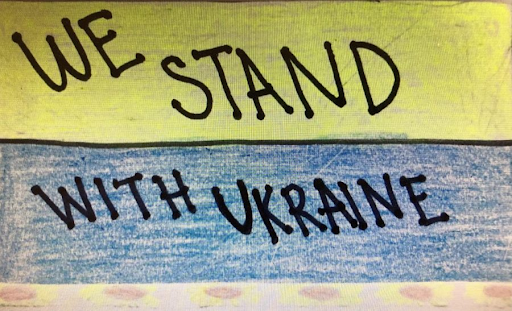 WE STAND
WITH UKRAINE